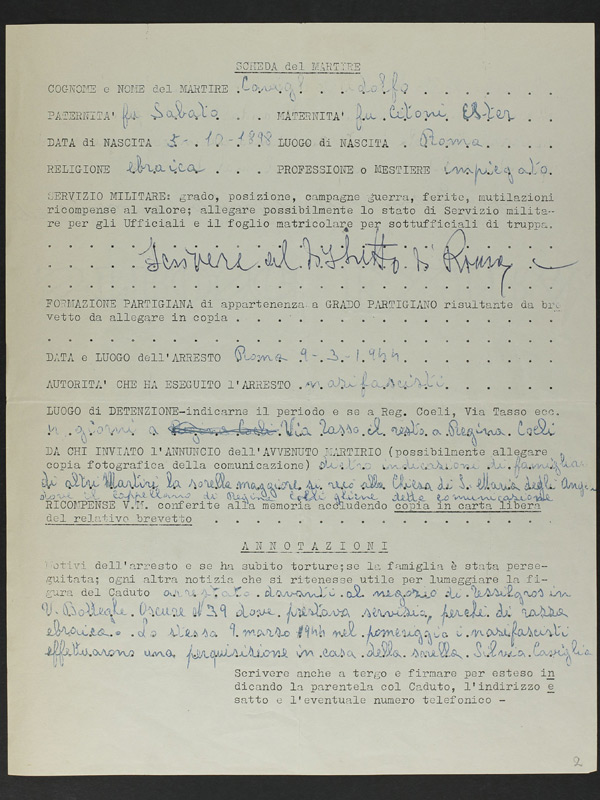 SCHEDA del MARTIRE
COGNOME e NOME del MARTIRE . . . dolfo . . . . . . .
PATERNITA' fu Sabato . . MATERNITA' fu Citoni Ester . .
DATA di NASCITA 5-10-1898 LUOGO di NASCITA . Roma . . . .
RELIGIONE ebraica . . . . PROFESSIONE o MESTIERE impiegato.
SERVIZIO MILITARE: grado, posizione, campagne guerra, ferite, mutilazioni
ricompense al valore; allegare possibilmente lo stato di Servizio milita-
re per gli Ufficiali e il foglio matricolare per sottufficiali di truppa.
di Roma
FORMAZIONE PARTIGIANA di appartenenza a GRADO PARTIGIANO risultante da bre
vetto da allegare in copia . . . . . . . . . . . . . .
DATA e LUOGO dell'ARRESTO Roma 9-3-1944 . . . . . . .
AUTORITA' CHE HA ESEGUITO l'ARRESTO . nazifascisti . . . . .
LUOGO di DETENZIONE-indicarne il periodo e se a Reg. Coeli, Via Tasso ecc.
giorni a Regina Coeli Via Tasso el resto a Regina Coeli
DA CHI INVIATO l'ANNUNCIO dell'AVVENUTO MARTIRIO (possibilmente allegare
copia fotografica della comunicazione) dietro indicazioni di famiglia
di altri Martiri la sorella maggiore si recò alla Chiesa di S. Maria degli Angeli
dove il cappellano di Regina Coeli gliene dette comunicazione
RICOMPENSE V.M. conferite alla memoria accludendo copia in carta libera
del relativo brevetto . . . . . . . . . . . . . .
ANNOTAZIONI
Motivi dell'arresto e se ha subito torture;se la famiglia è stata perse-
guitata; ogni altra notizia che si ritenesse utile per lumeggiare la fi-
gura del Caduto arrestato davanti al negozio di Tessilgros in
V. Botteghe Oscure n° 39 dove prestava servizio, perchè di razza
ebraica. Lo stesso 9 marzo 1944 nel pomeriggio i nazifascisti
effettuarono una perquisizione in casa della sorella Silvia Caviglia
Scrivere anche a tergo e firmare per esteso in
dicando la parentela col Caduto, l'indirizzo e
satto e l'eventuale numero telefonico -
2